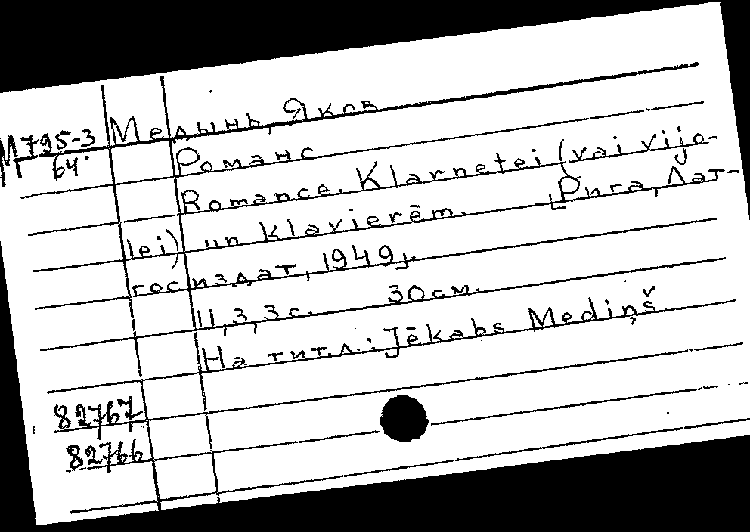 М 795-3
64
Медынь, Яков
Романс
Romance. Klarnetei (vai vijo-
lei) un klavierēm. [Рига, Лат-
госиздат, 1949].
11, 3, 3 с. 30 см.
На титл.: Jēkabs Mediņš
82767
82766